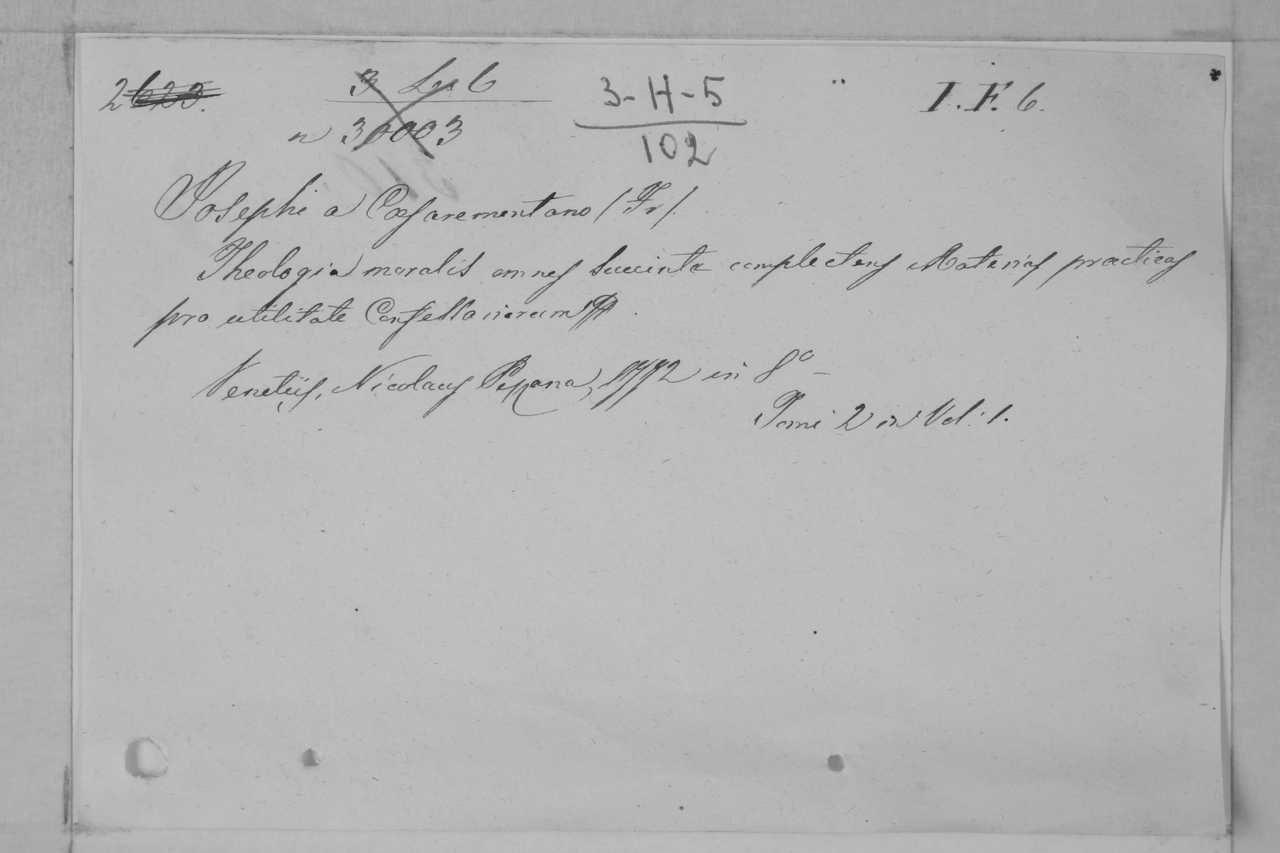 3-H-5
102
I. F. 6.
Josephi a Cæsaremontano (Fr).
Theologia moralis omnes succinte complectens Materias practicas
pro utilitate Confessariorum
Venetiis, Nicolaus Pezzana, 1772 in 8º
Tomi 2 in Vol: 1.